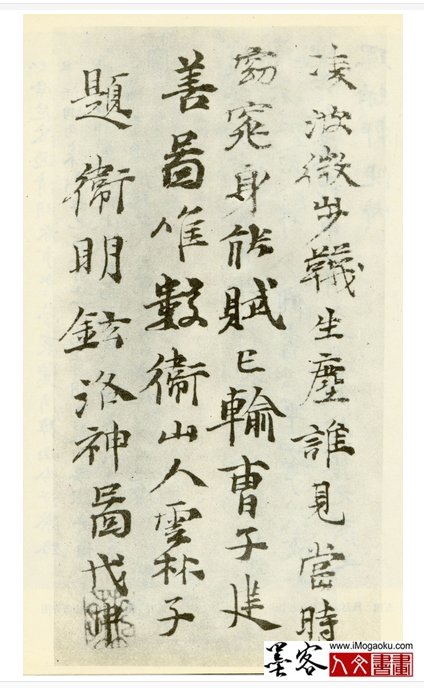 凌波微步韈生塵誰見當時
窈窕身能賦已輸曹子建
善圖唯數衛山人雲林子
題衛明鉉洛神圖戊申
墨客
www.iMogaoku.com
人文書畫